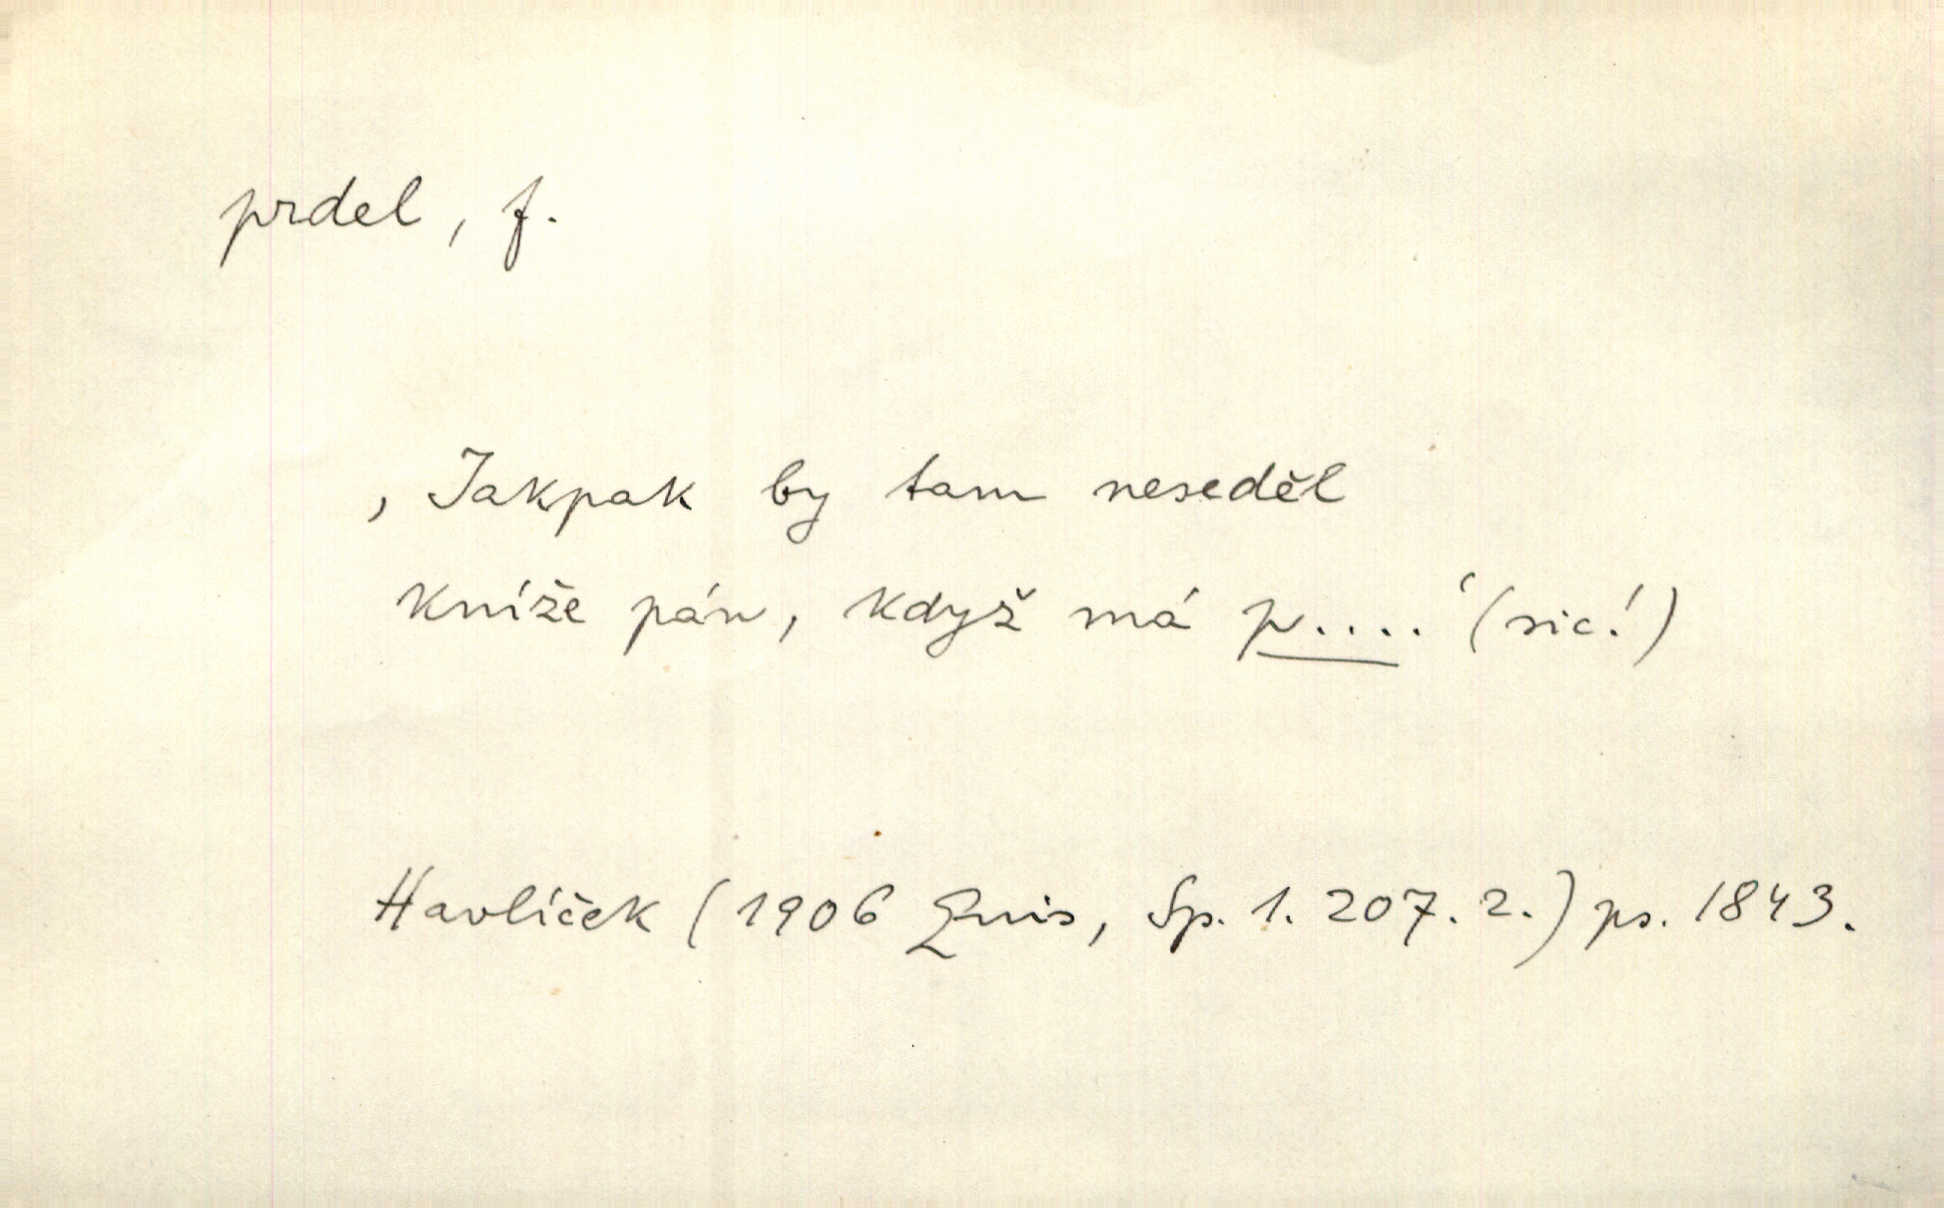 prdel, f.
‚Jakpak by tam neseděl
kníže pán, když má p....‘ (sic!)
Havlíček (1906 Quis, Sp. 1. 207. 2.) ps. 1843.